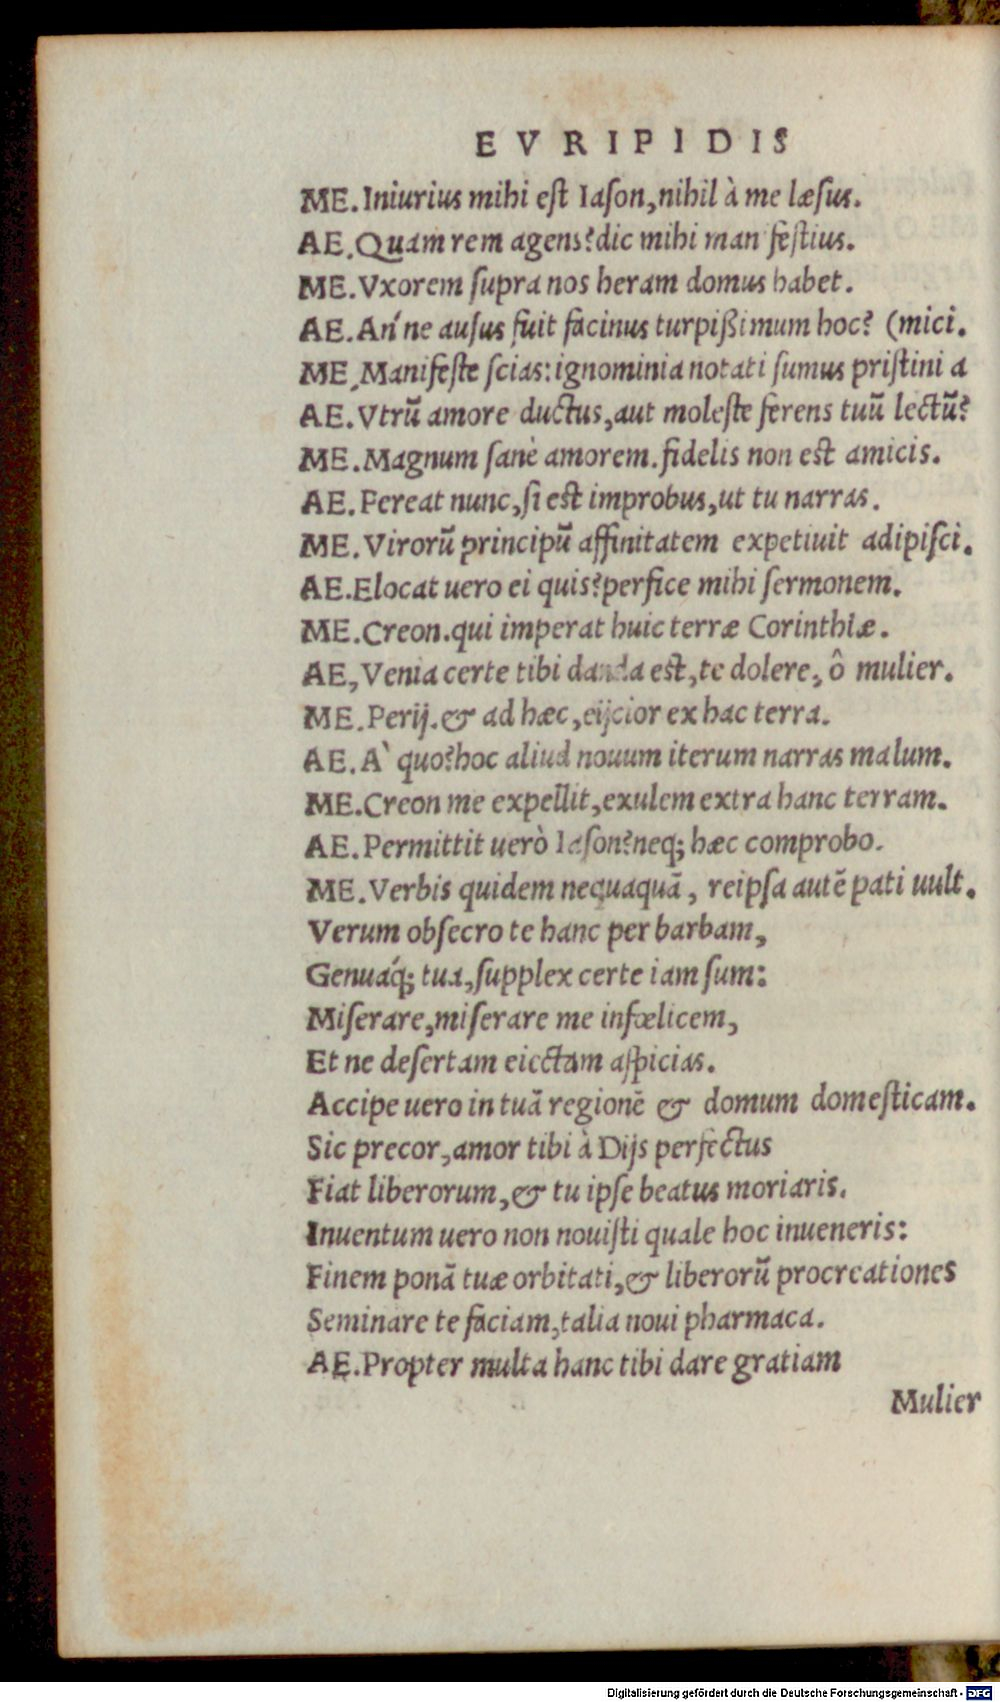 EVRIPIDIS
ME. Iniurius mihi est Iason, nihil à me læsus.
AE. Quam rem agens? dic mihi man festius.
ME. Vxorem supra nos heram domus habet.
AE. An' ne ausus fuit facinus turpißimum hoc? (mici.
ME. Manifeste scias: ignominia notati sumus pristini a
AE. Vtrū amore ductus, aut moleste ferens tuū lectū?
ME. Magnum sanè amorem. fidelis non est amicis.
AE. Pereat nunc, si est improbus, ut tu narras.
ME. Virorū principū affinitatem expetiuit adipisci.
AE. Elocat uero ei quis? perfice mihi sermonem.
ME. Creon. qui imperat huic terræ Corinthiæ.
AE, Venia certe tibi danda est, te dolere, ô mulier.
ME. Perij. & ad hæc, eijcior ex hac terra.
AE. A` quo? hoc aliud nouum iterum narras malum.
ME. Creon me expellit, exulem extra hanc terram.
AE. Permittit uerò Iason? neq; hæc comprobo.
ME. Verbis quidem nequaquā, reipsa autē pati uult.
Verum obsecro te hanc per barbam,
Genuáq; tua, supplex certe iam sum:
Miserare, miserare me infœlicem,
Et ne desertam eiectam aspicias.
Accipe uero in tuā regionē & domum domesticam.
Sic precor, amor tibi à Dijs perfectus
Fiat liberorum, & tu ipse beatus moriaris.
Inuentum uero non nouisti quale hoc inueneris:
Finem ponā tuæ orbitati, & liberorū procreationes
Seminare te faciam, talia noui pharmaca.
AE. Propter multa hanc tibi dare gratiam
Mulier
Digitalisierung gefördert durch die Deutsche Forschungsgemeinschaft - DFG